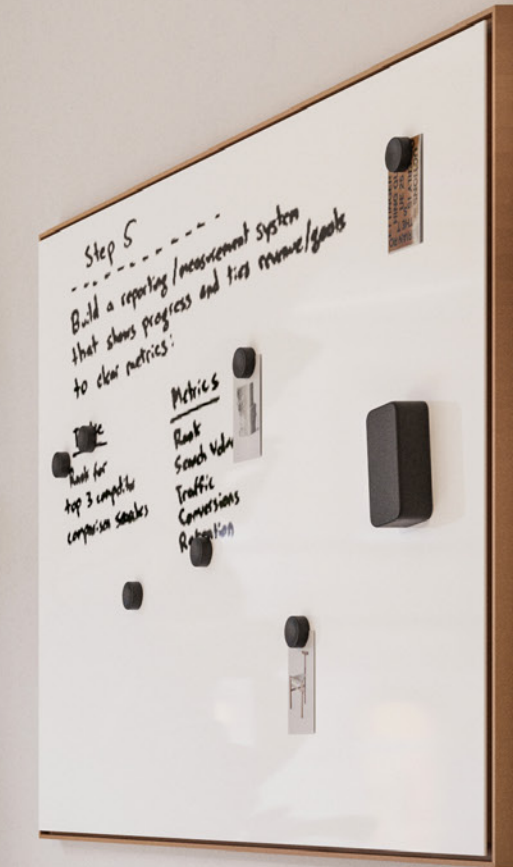 Step 5
Build a reporting/measurement system
that shows progress and ties revenue/goals
to clear metrics:
Rank for
top 3 competitor
comparison searches
Metrics
Rank
Search
Traffic
Conversions
Retention